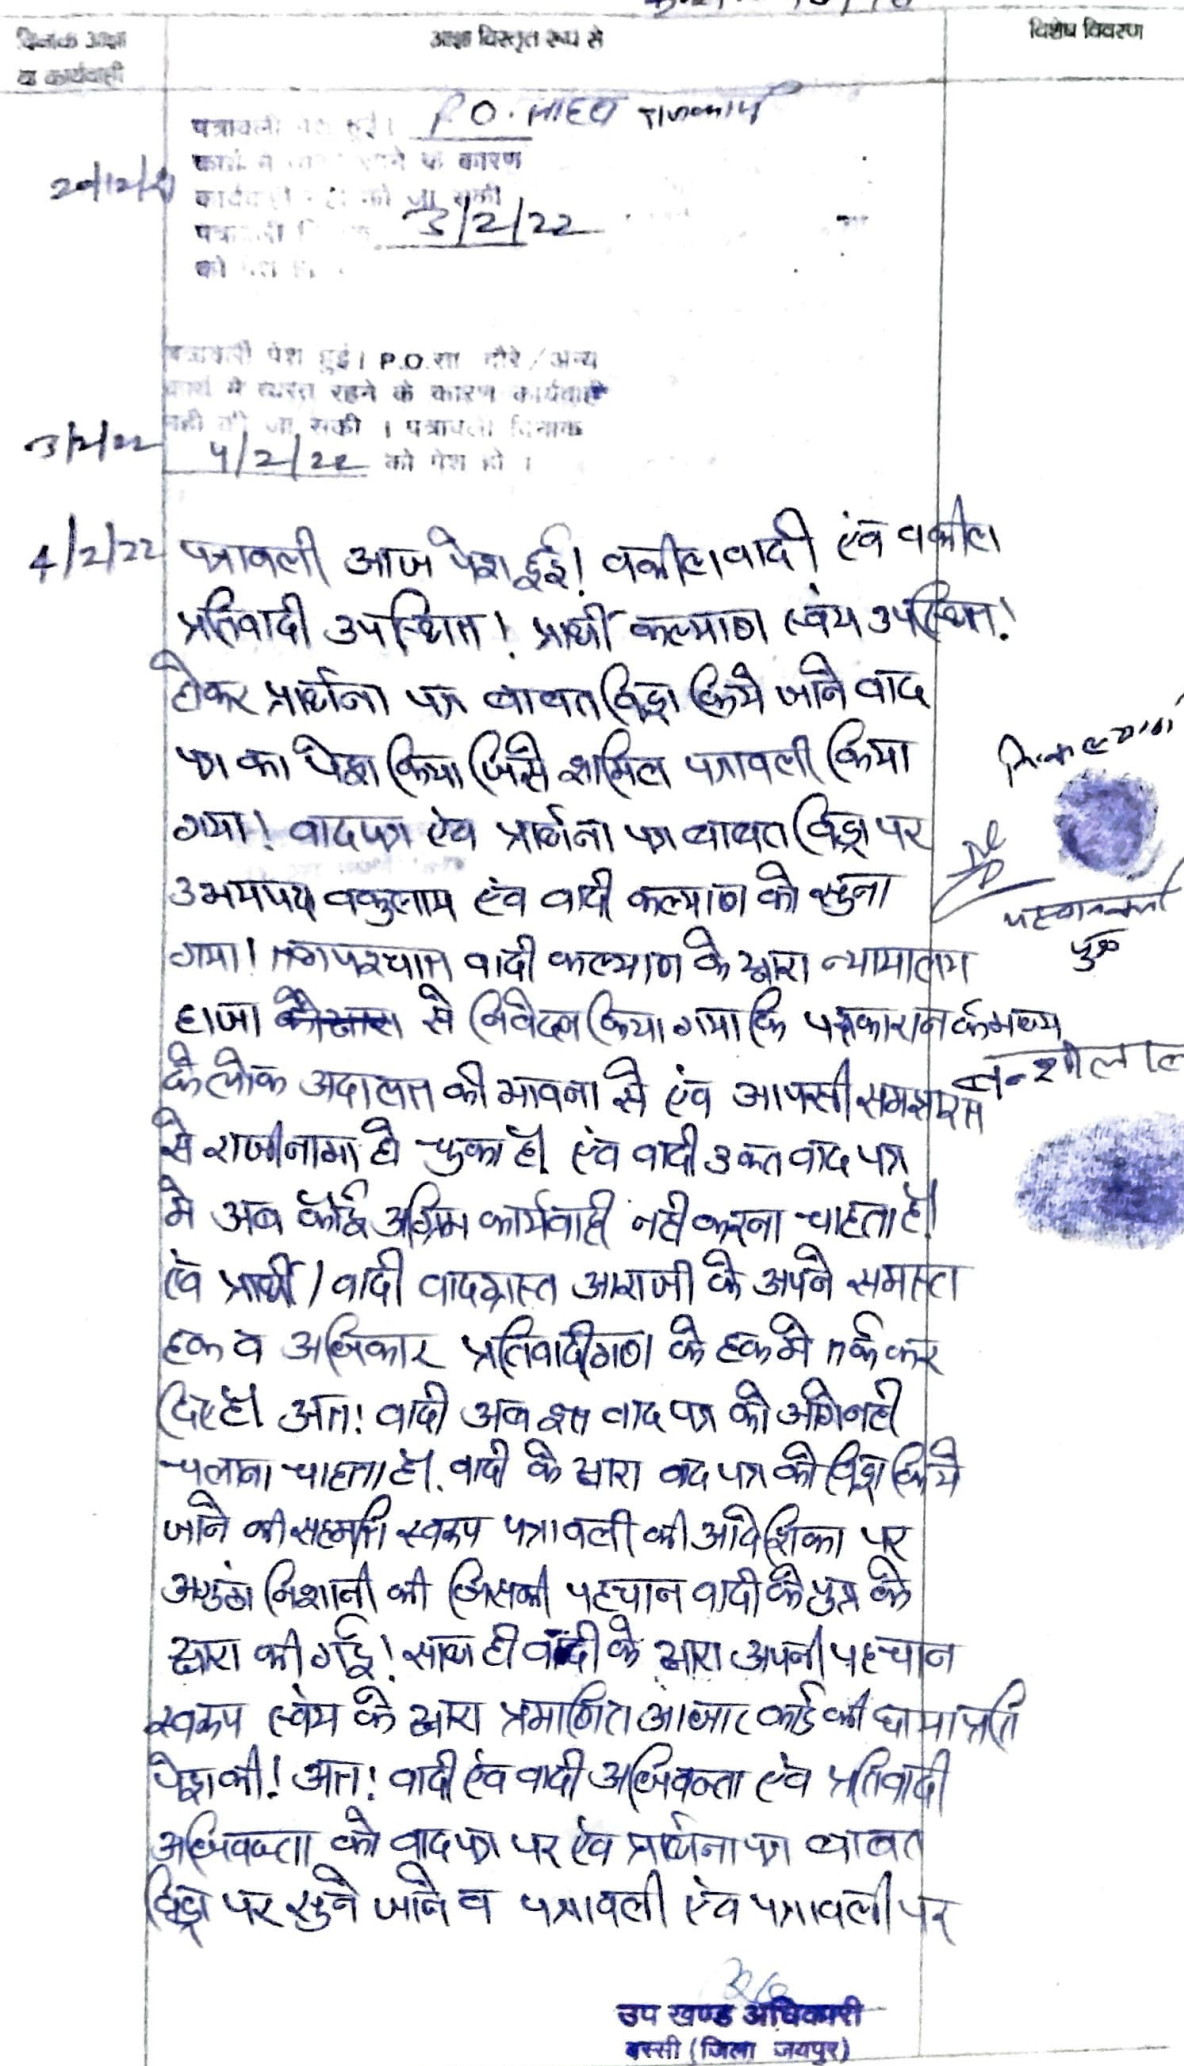 दिनांक आज्ञा
व कार्यवाही
आज्ञा विस्तृत रूप से
विशेष विवरण
पत्रावली पेश हुई। P.O. साहब राजकार्य
कार्य में के कारण
20/12/21
कार्यवाही नहीं की जा सकी
पत्रावली 3/2/22
को पेश
पत्रावली पेश हुई। P.O. सा दौरे/अन्य
कार्य में व्यस्त रहने के कारण कार्यवाही
नही की जा सकी । पत्रावली दिनांक
3/2/22
4/2/22 को पेश हो ।
4/2/22
पत्रावली आज पेश हुई! वकील वादी एंव वकील
प्रतिवादी उपस्थित! प्रार्थी कल्याण स्वंय उपस्थित!
होकर प्रार्थना पत्र बाबत विड्रा किये जाने वाद
पत्र का पेश किया जिसे शामिल पत्रावली किया
गया! वादपत्र एंव प्रार्थना पत्र बाबत विड्रा पर
उभयपक्ष वकुलाय एंव वादी कल्याण को सुना
गया! तत्पश्चात वादी कल्याण के द्वारा न्यायालय
हाजा से निवेदन किया गया कि पक्षकारान के मध्य
के लोक अदालत की भावना से एंव आपसी समझाईस
से राजीनामा हो चुका है। एंव वादी उक्त वाद पत्र
मे अब कोई अग्रिम कार्यवाही नही करना चाहता है!
एंव प्रार्थी/वादी वादग्रस्त आराजी के अपने समस्त
हक व अधिकार प्रतिवादीगण के हक मे तर्क कर
दिए है। अत! वादी अब इस वाद पत्र को आगे नही
चलाना चाहता है। वादी के द्वारा वाद पत्र को विड्रा किये
जाने की सहमति स्वरूप पत्रावली की आदेशिका पर
अगुंठा निशानी की जिसकी पहचान वादी के पुत्र के
द्वारा की गई! साथ ही वादी के द्वारा अपनी पहचान
स्वरूप स्वंय के द्वारा प्रमाणित आधार कार्ड की छायाप्रति
पेश की! अत! वादी एंव वादी अधिवक्ता एंव प्रतिवादी
अधिवक्ता को वादपत्र पर एंव प्रार्थना पत्र बाबत
विड्रा पर सुने जाने व पत्रावली एंव पत्रावली पर
नि. कल्याण
पहचानकर्ता
पुत्र
उप खण्ड अधिकारी
बस्सी (जिला जयपुर)